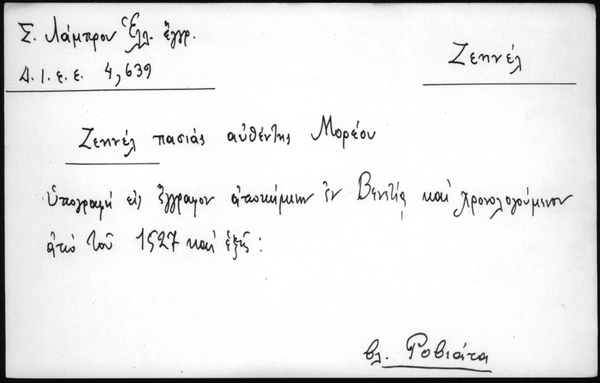 Σ. Λάμπρου Ἑλλ. ἔγγρ.
Δ.Ι.Ε.Ε. 4,639
Ζεηνέλ
Ζεηνέλ πασιάς αὐθέντης Μορέου
Ὑπογραφή εἰς ἔγγραφον ἀποκείμενον ἐν Βενετίᾳ καί χρονολογούμενον
ἀπό τοῦ 1527 καί ἑξῆς:
βλ. Ροβιάτα